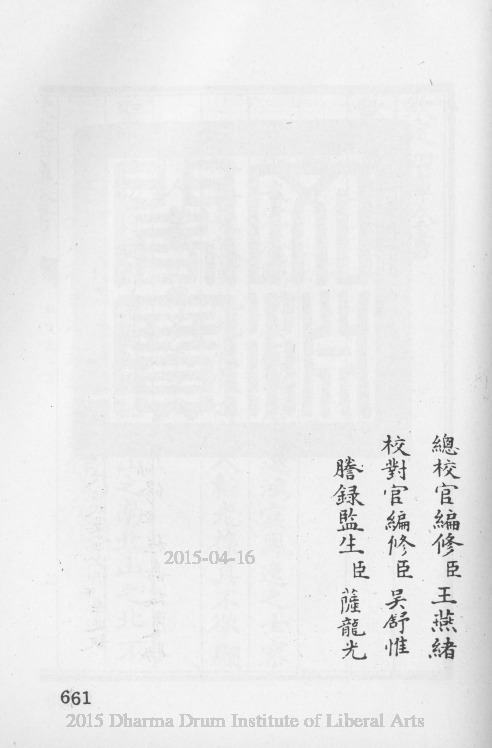 總校官編修臣王燕緒
校對官編修臣吳舒惟
謄錄監生臣薩龍光
2015-04-16
661
2015 Dharma Drum Institute of Liberal Arts